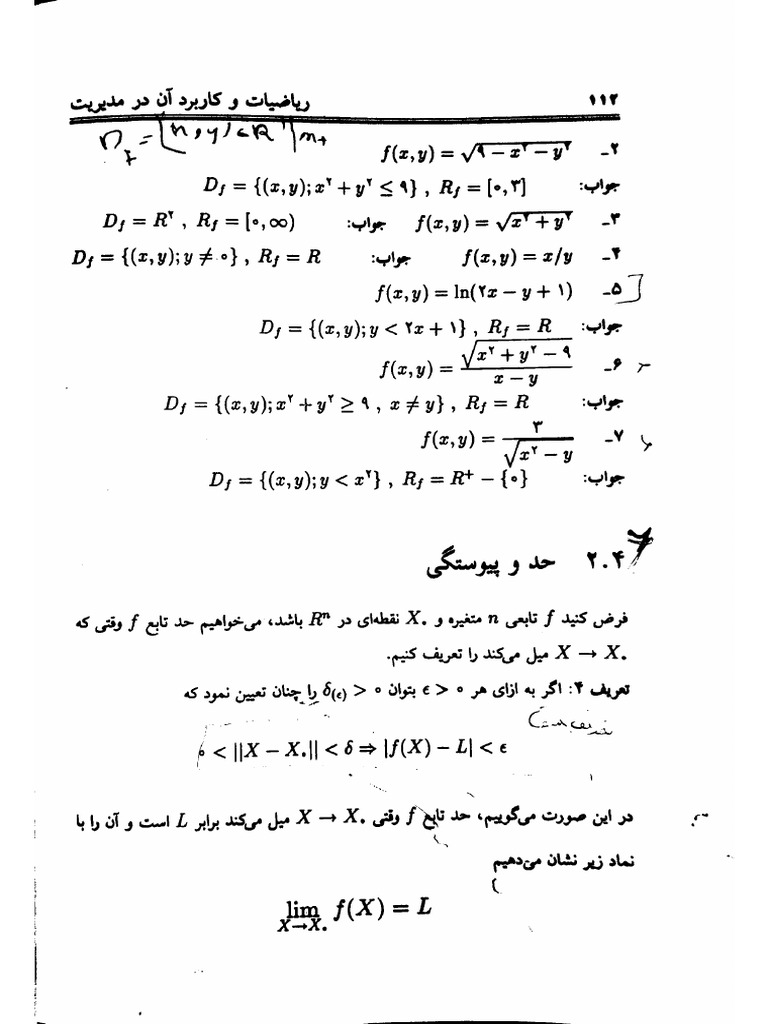 ۱۱۲ ریاضیات و کاربرد آن در مدیریت
۲ـ f(x, y) = √(۹ − x^۲ − y^۲)
جواب: D_f = {(x, y); x^۲ + y^۲ ≤ ۹} , R_f = [۰, ۳]
۳ـ f(x, y) = √(x^۲ + y^۲) جواب: D_f = R^۲ , R_f = [۰, ∞)
۴ـ f(x, y) = x/y جواب: D_f = {(x, y); y ≠ ۰} , R_f = R
۵ـ f(x, y) = ln(۲x − y + ۱)
جواب: D_f = {(x, y); y < ۲x + ۱} , R_f = R
۶ـ f(x, y) = √(x^۲ + y^۲ − ۹) / (x − y)
جواب: D_f = {(x, y); x^۲ + y^۲ ≥ ۹ , x ≠ y} , R_f = R
۷ـ f(x, y) = ۳ / √(x^۲ − y)
جواب: D_f = {(x, y); y < x^۲} , R_f = R^+ − {۰}
۲.۴ حد و پیوستگی
فرض کنید f تابعی n متغیره و X₀ نقطه‌ای در R^n باشد، می‌خواهیم حد تابع f وقتی که
X → X₀ میل می‌کند را تعریف کنیم.
تعریف ۴: اگر به ازای هر ε > ۰ بتوان δ_(ε) > ۰ را چنان تعیین نمود که
۰ < ||X − X₀|| < δ ⇒ |f(X) − L| < ε
در این صورت می‌گوییم، حد تابع f وقتی X → X₀ میل می‌کند برابر L است و آن را با
نماد زیر نشان می‌دهیم
lim f(X) = L
X→X₀